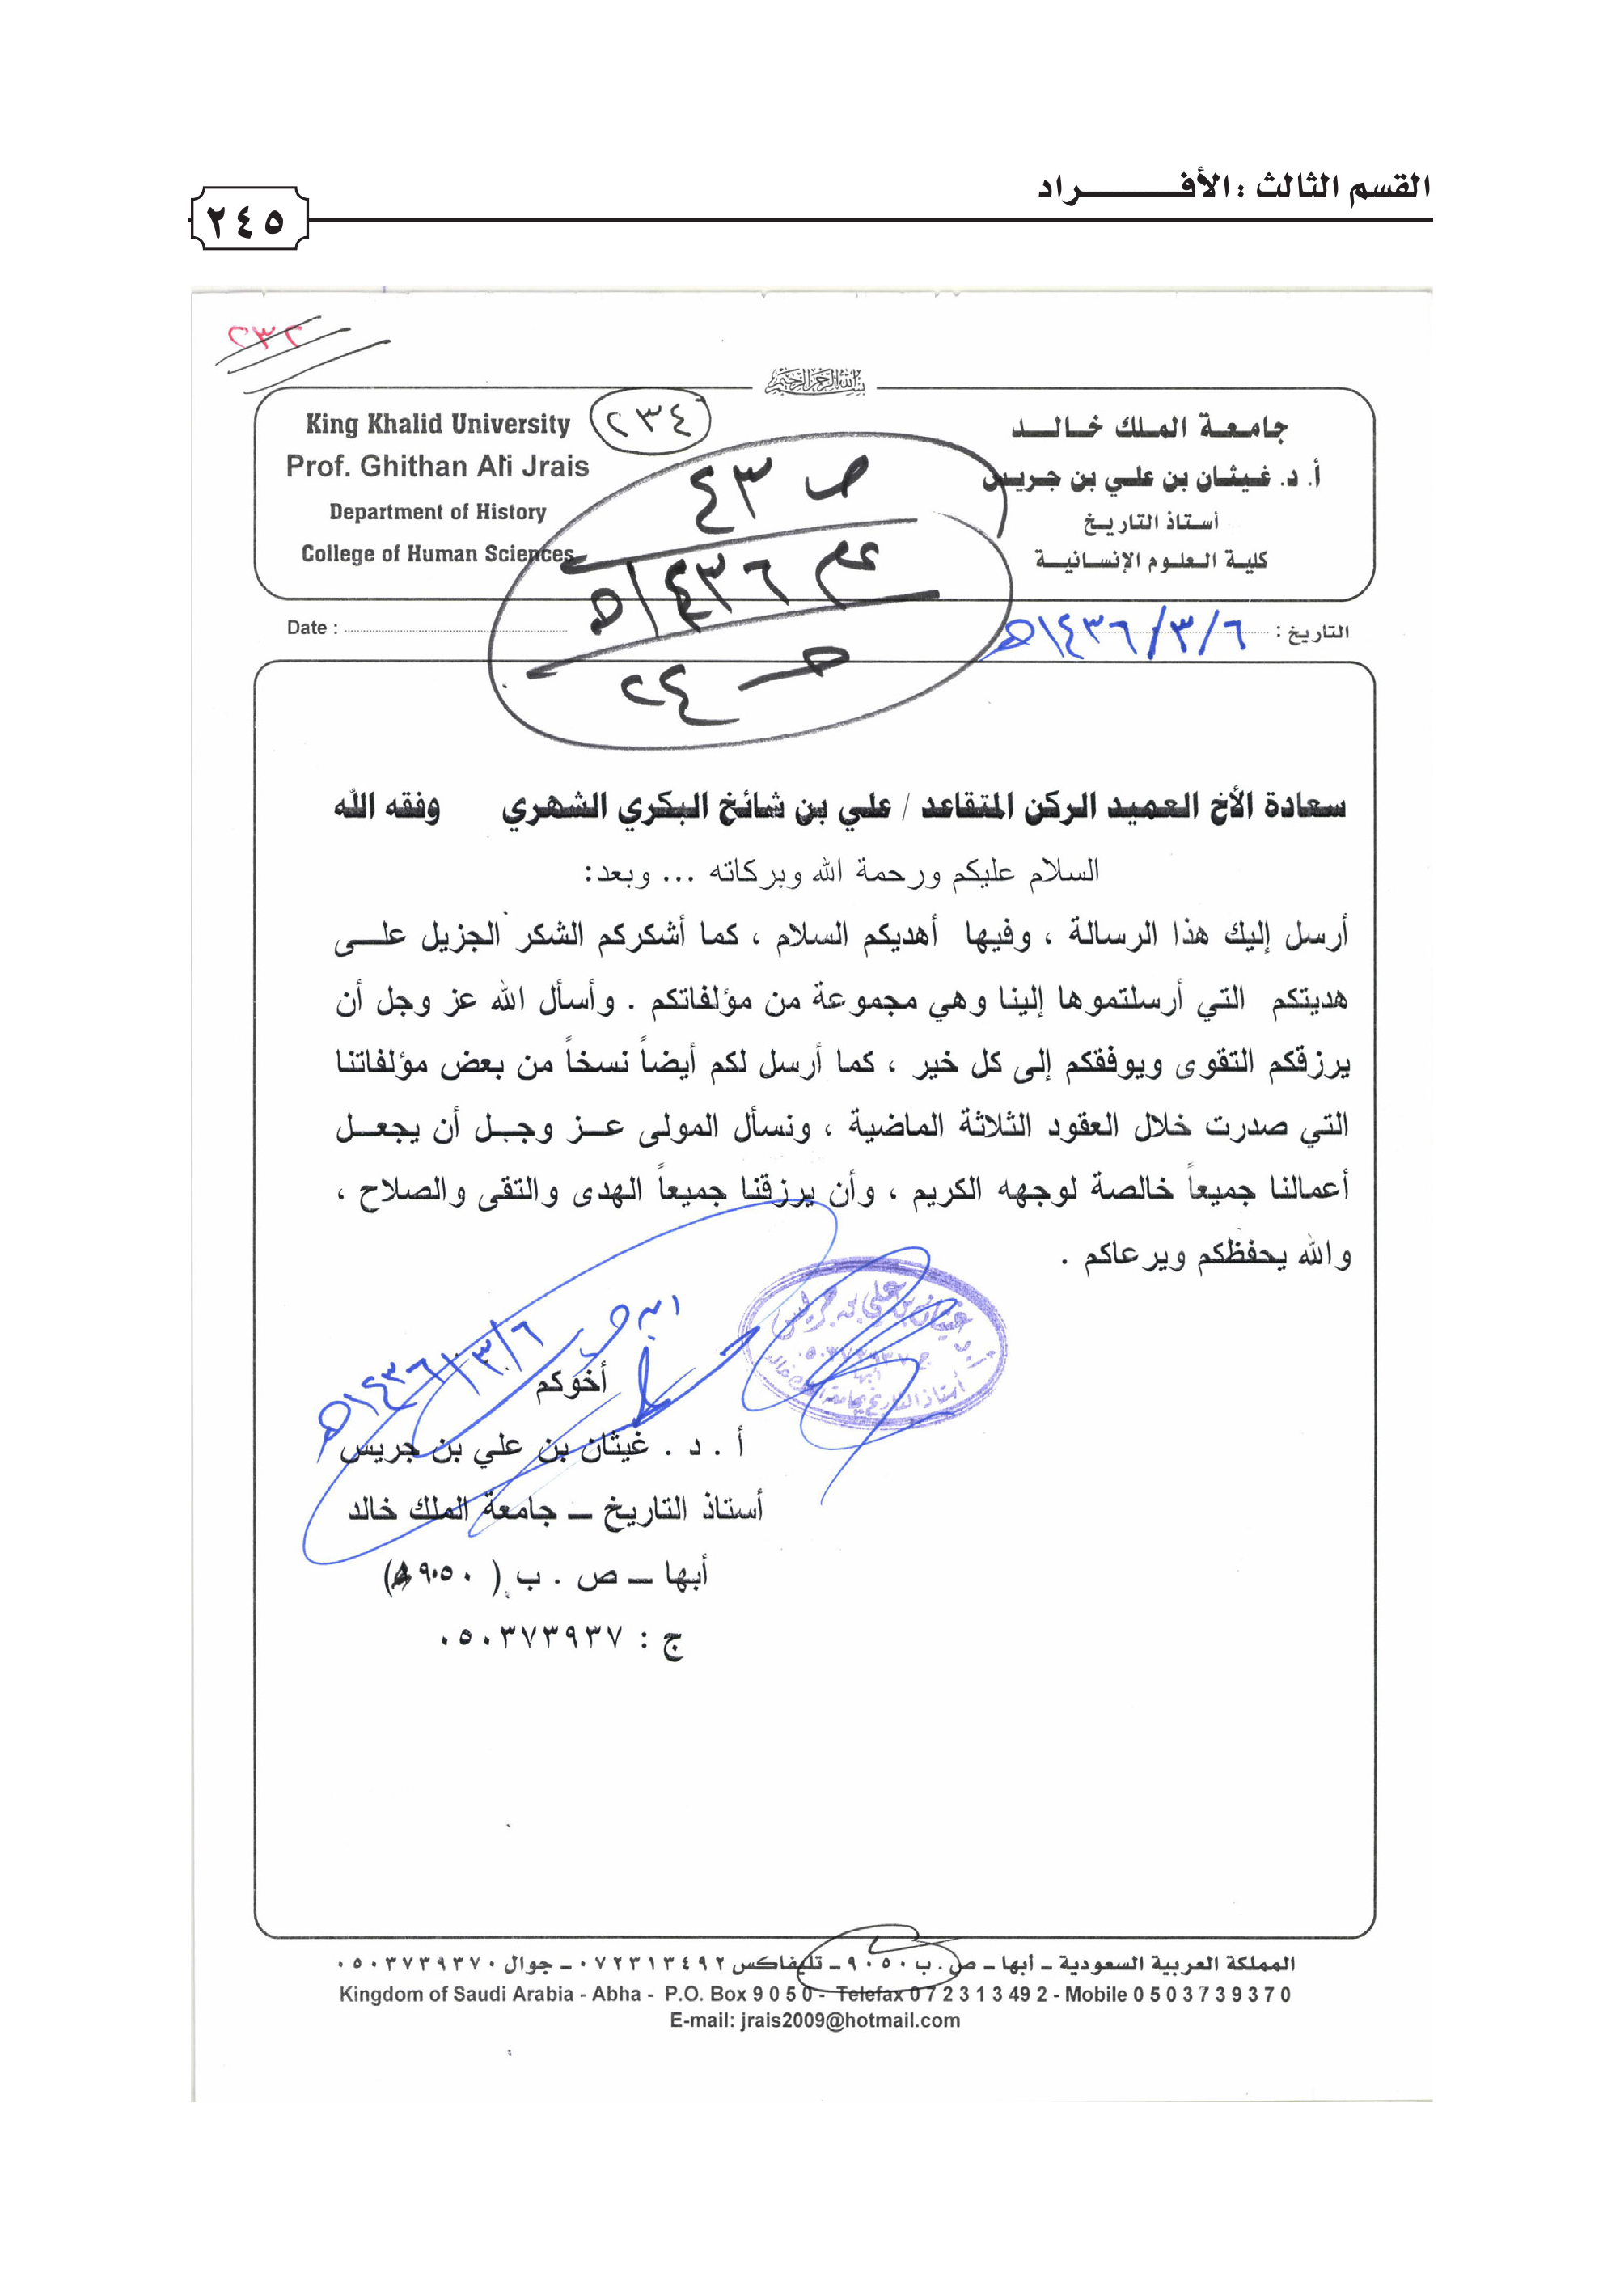 القسم الثالث : الأفـــــــراد
٢٤٥
٢٣٢
بسم الله الرحمن الرحيم
جامعة الملك خالد
أ. د. غيثان بن علي بن جريس
أستاذ التاريخ
كلية العلوم الإنسانية
King Khalid University
Prof. Ghithan Ali Jrais
Department of History
College of Human Sciences
٢٣٤
ص ٤٣
عم ١٤٣٦هـ
حـ ٢٤
التاريخ : ١٤٣٦/٣/٦هـ
Date :
سعادة الأخ العميد الركن المتقاعد / علي بن شائخ البكري الشهري وفقه الله
السلام عليكم ورحمة الله وبركاته ... وبعد:
أرسل إليك هذا الرسالة ، وفيها أهديكم السلام ، كما أشكركم الشكر الجزيل علـــى
هديتكم التي أرسلتموها إلينا وهي مجموعة من مؤلفاتكم . وأسأل الله عز وجل أن
يرزقكم التقوى ويوفقكم إلى كل خير ، كما أرسل لكم أيضاً نسخاً من بعض مؤلفاتنا
التي صدرت خلال العقود الثلاثة الماضية ، ونسأل المولى عــز وجــل أن يجعــل
أعمالنا جميعاً خالصة لوجهه الكريم ، وأن يرزقنا جميعاً الهدى والتقى والصلاح ،
والله يحفظكم ويرعاكم .
أ.د غيثان بن علي بن جريس
أبها
أستاذ التاريخ بجامعة الملك خالد
ابن جريس
١٤٣٦/٣/٦هـ
أخوكم
أ . د . غيثان بن علي بن جريس
أستاذ التاريخ ــ جامعة الملك خالد
أبها ــ ص . ب ( ٩٠٥٠ )
ج : ٠٥٠٣٧٣٩٣٧
المملكة العربية السعودية ـ أبها ـ ص . ب ٩٠٥٠ ـ تليفاكس ٠٧٢٣١٣٤٩٢ ـ جوال ٠٥٠٣٧٣٩٣٧٠
Kingdom of Saudi Arabia - Abha - P.O. Box 9 0 5 0 - Telefax 0 7 2 3 1 3 49 2 - Mobile 0 5 0 3 7 3 9 3 7 0
E-mail: jrais2009@hotmail.com